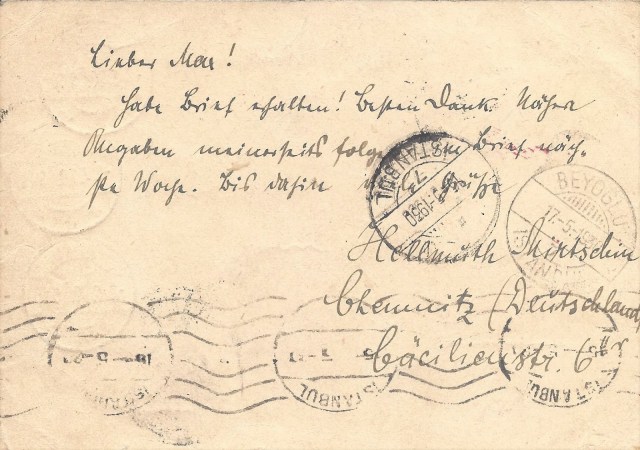 Lieber Max!
Habe Brief erhalten! Besten Dank. Nähere
Angaben meinerseits folgen im Brief näch-
ste Woche. Bis dahin viele Grüße
Hellmuth Mirtschin
Chemnitz (Deutschland)
Cäcilienstr. 6
ISTANBUL
1930
BEYOGLU
17-5-
ISTANBUL
ISTANBUL
ISTANBUL